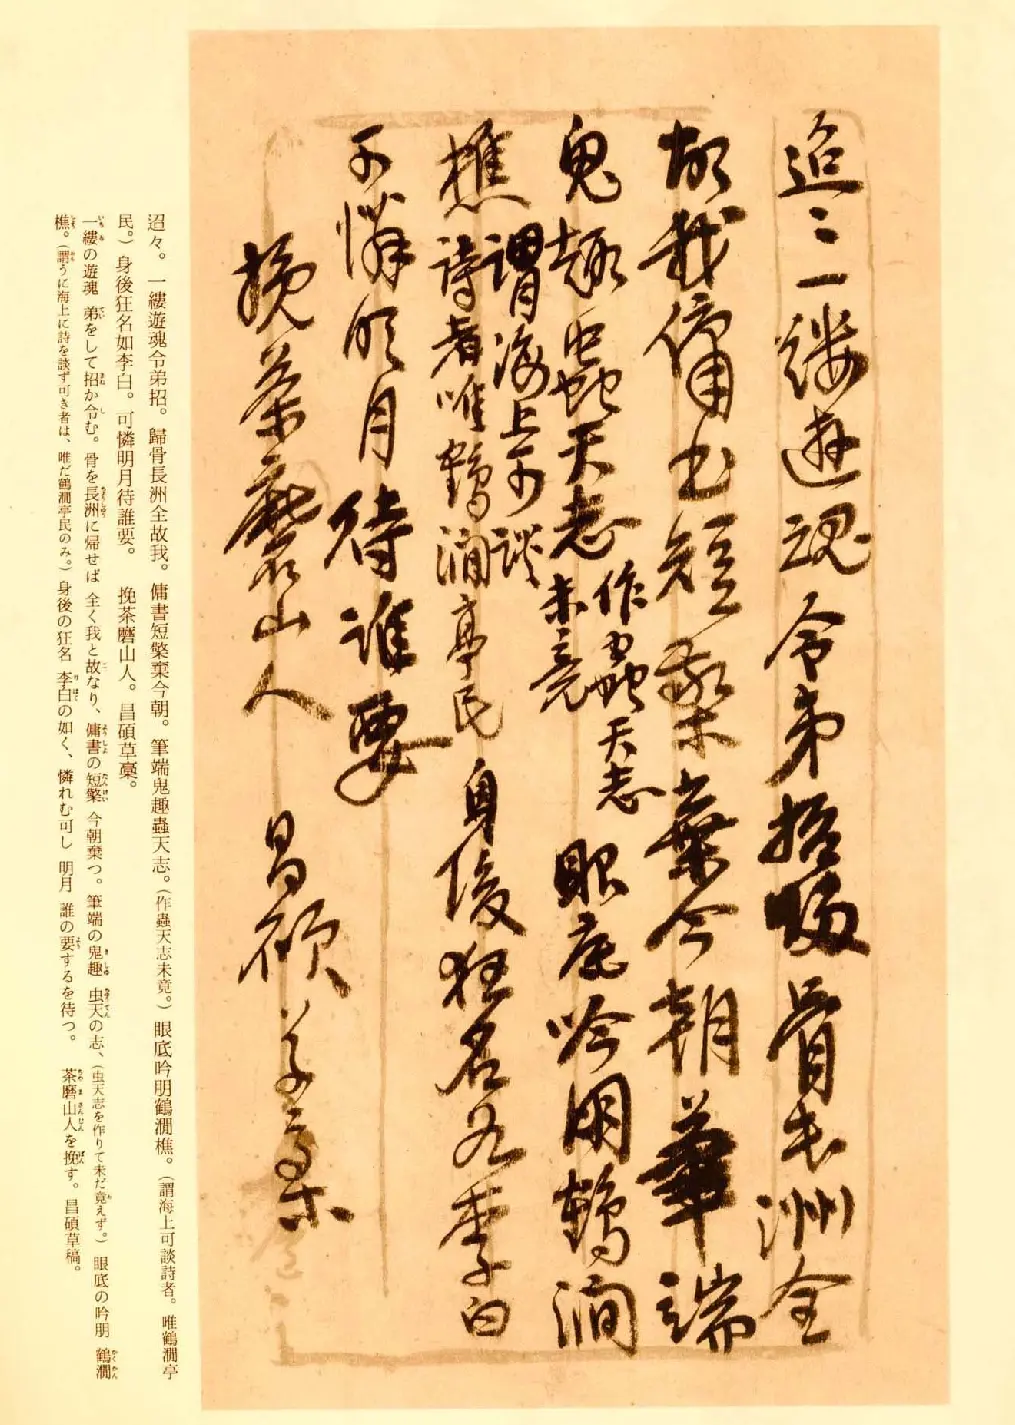 迢〻一縷遊魂令弟招歸骨長洲全
故我傭書短檠棄今朝筆端
鬼趣蟲天志作蟲天志未竟眼底吟朋鶴澗
樵謂海上可談詩者唯鶴澗亭民身後狂名如李白
可憐明月待誰要
挽茶磨山人 昌碩草稾
迢々。一縷遊魂令弟招。歸骨長洲全故我。傭書短檠棄今朝。筆端鬼趣蟲天志。(作蟲天志未竟。)眼底吟朋鶴澗樵。(謂海上可談詩者。唯鶴澗亭
民。)身後狂名如李白。可憐明月待誰要。 挽茶磨山人。昌碩草稾。
一縷の遊魂 弟をして招か令む。骨を長洲に帰せば 全く我と故なり、傭書の短檠 今朝棄つ。筆端の鬼趣 虫天の志、(虫天志を作りて未だ竟えず。) 眼底の吟朋 鶴澗
樵。(謂うに海上に詩を談ず可き者は、唯だ鶴澗亭民のみ。)身後の狂名 李白の如く、憐れむ可し 明月 誰の要するを待つ。 茶磨山人を挽す。昌碩草稿。